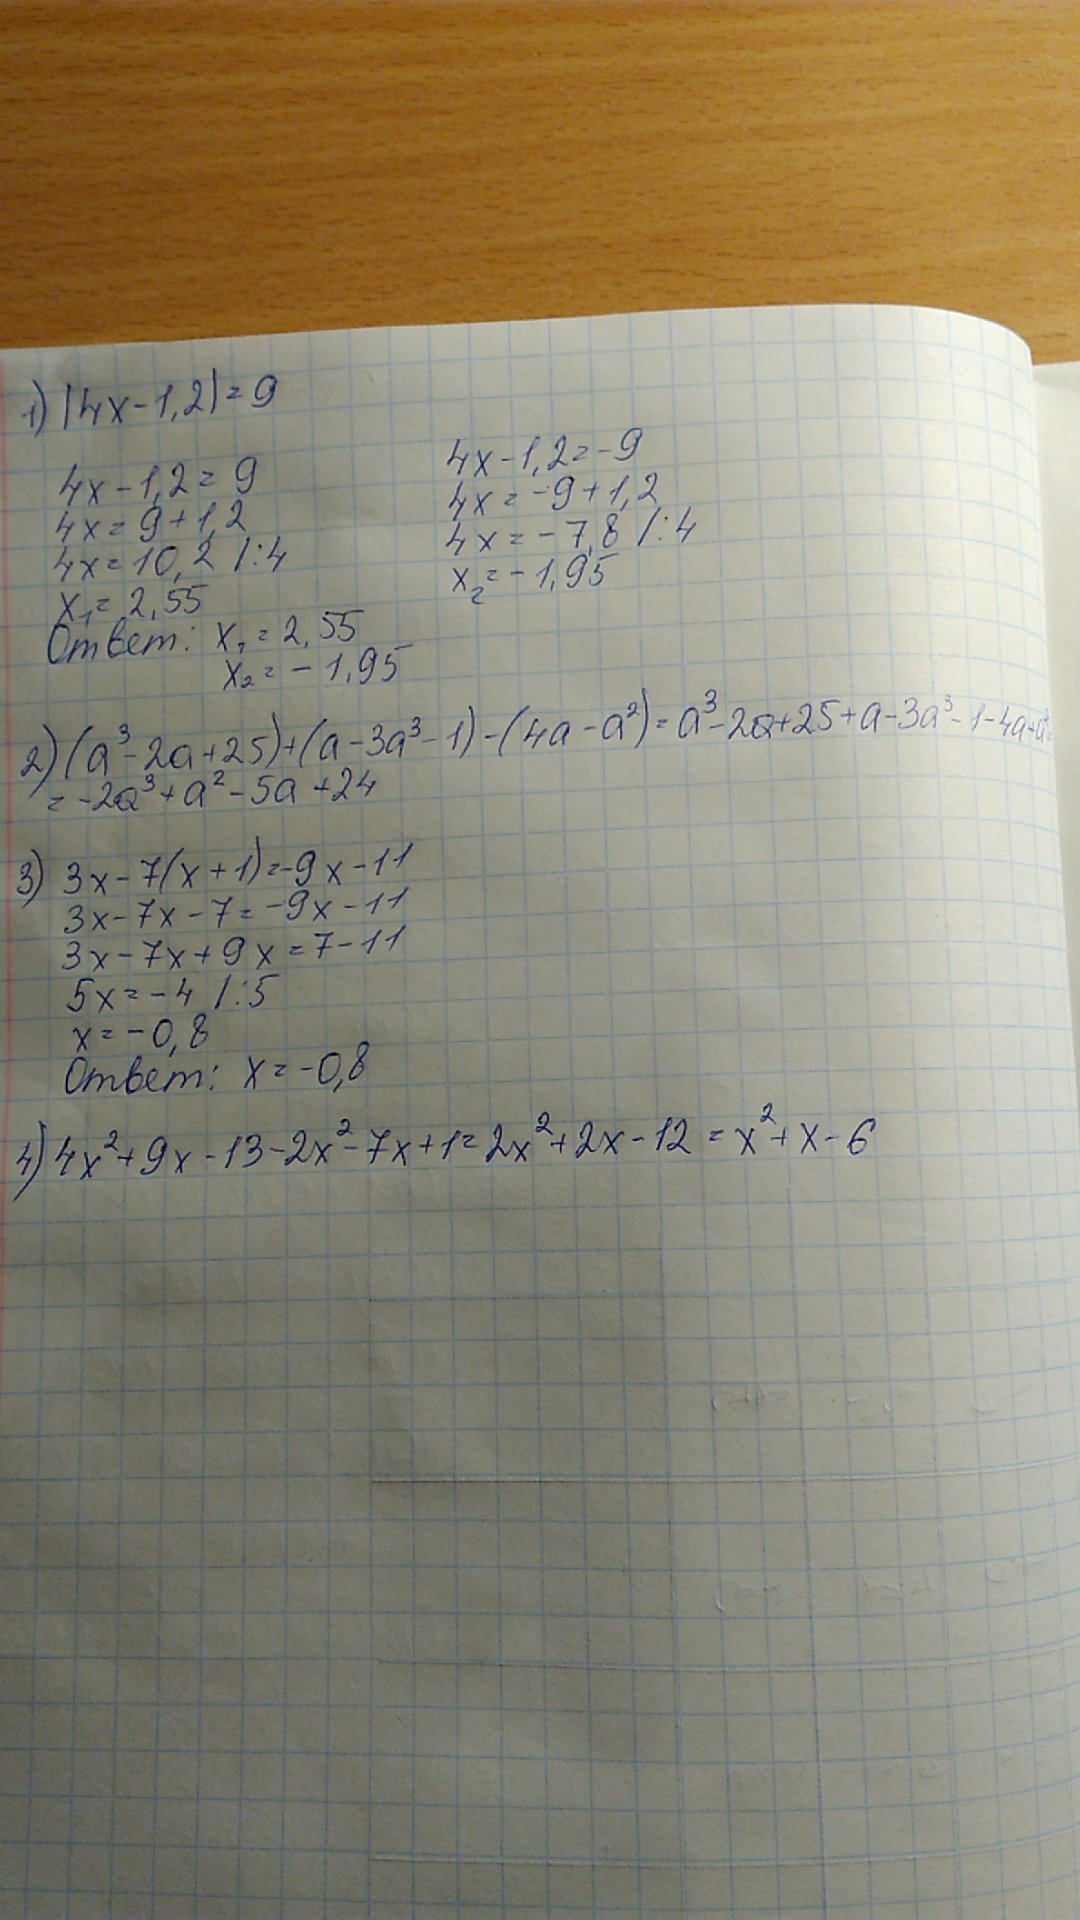 1) |4x-1,2|=9
4x-1,2=9
4x=9+1,2
4x=10,2 /:4
x₁=2,55
4x-1,2=-9
4x=-9+1,2
4x=-7,8 /:4
x₂=-1,95
Ответ: x₁=2,55
x₂=-1,95
2) (a³-2a+25)+(a-3a³-1)-(4a-a²)=a³-2a+25+a-3a³-1-4a+a²=
=-2a³+a²-5a+24
3) 3x-7(x+1)=-9x-11
3x-7x-7=-9x-11
3x-7x+9x=7-11
5x=-4 /:5
x=-0,8
Ответ: x=-0,8
4) 4x²+9x-13-2x²-7x+1=2x²+2x-12=x²+x-6